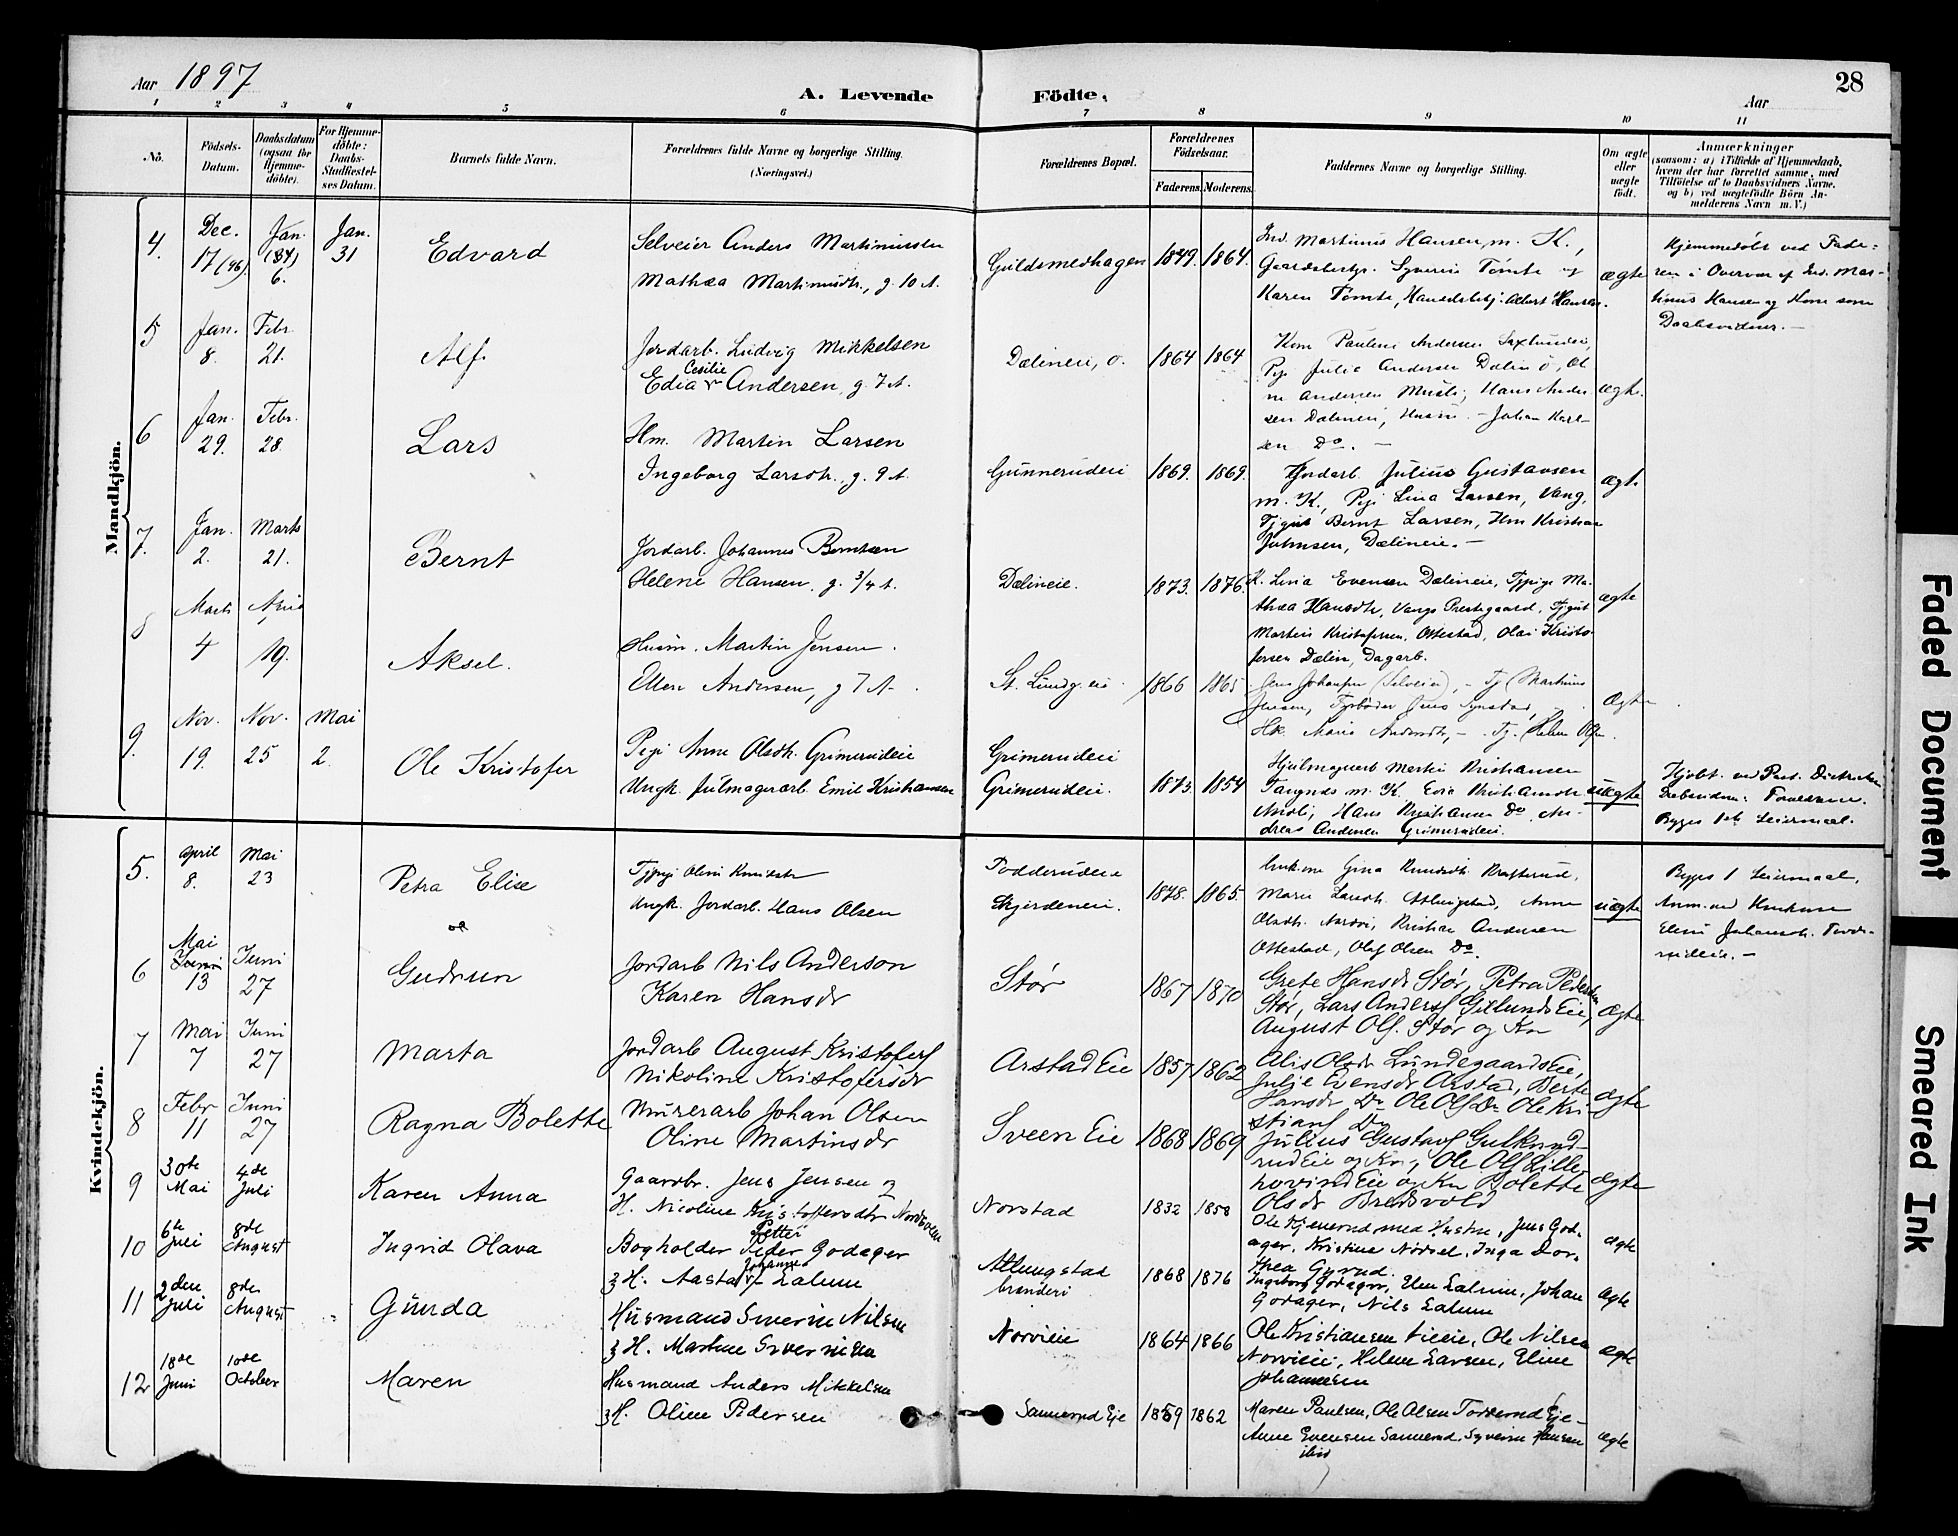 Aar 1897
A. Levende Fødte.
Aar
28
1 2 3 4 5 6 7 8 9 10 11
No.
Födsels-Datum.
Daabsdatum (ogsaa for Hjemme-döbte).
For Hjemme-döbte: Daabs-Stadfæstel-ses Datum.
Barnets fulde Navn.
Forældrenes fulde Navne og borgerlige Stilling. (Næringsvei.)
Forældrenes Bopæl.
Forældrenes Födselsaar.
Faderens. Moderens.
Faddernes Navne og borgerlige Stilling.
Om ægte eller uægte födt.
Anmærkninger
(saasom: a) i Tilfælde af Hjemmedaab,
hvem der har forrettet samme, med
Tilföielse af to Daabsvidners Navne,
og b) ved uægtefödte Börn An-
melderens Navn m. V.)
Mandkjön.
4. Dec. 17 (96) Jan. 6. Jan. 31 Edvard
Selveier Anders Martinussen
Mathea Martinusdtr., g. 10 A.
Guldsmedhagen 1849. 1864.
Ind. Martinus Hansen m. K.,
Gaardbestyr. Syverin Tømte og
Karen Tømte, Handelsbetj. Albert Hansen.
ægte
Hjemmedøbt ved Fade-
ren i Overvær af Ind. Mar-
tinus Hansen og Kone som
Daabsvidner. —
5 Jan. 8. Febr. 21. Alf.
Jordarb. Ludvig Mikkelsen
Cesilie
Edia Andersen, g. 7 A.
Dælineie, o. 1864 1864
Kone Pauline Andersen Saxlundeie,
Pige Julie Andersen Dælin o, Ol
ne Andersen Musli, Hans Ander
sen Dælineie, Husm. – Johan Karl-
sen Do. —
ægte.
6 Jan. 29. Febr. 28. Lars
Hm. Martin Larsen
Ingeborg Larsdtr., g. 9 A.
Gunnerudeie 1869. 1869.
Jordarb. Julius Gustavsen
m. K., Pige Lina Larsen, Vang,
Tjgut Bernt Larsen, Hm Kristian
Johnsen, Dælineie. —
ægte
7. Jan. 2. Marts 21. Bernt
Jordarb. Johannes Berntsen
Helene Hansen, g. 3/4 A.
Dælineie. 1873. 1876.
K. Lina Evensen Dælineie, Tjpige Ma-
thea Hansdtr, Vangs Prestegaard, Tjgut
Martin Kristofersen, Ottestad, Olai Kristo-
fersen Dælin, Dagarb.
ægte
8 Marts 4 April 19. Aksel.
Husm. Martin Jensen.
Ellen Andersen, g 7 A.
St. Lundg. eie 1866 1865
Jens Johansen (Selveier), – Tj. Martinus
Jensen, Fyrbøder Jens Synstad,
Hk. Marie Andersdtr, – Tj. Helene Olsen.
ægte
9. Nov. 19. Nov. 25 Mai 2. Ole Kristofer
Pige Anne Olsdtr. Grimerudeie
Ungk. Julmagerarb. Emil Kristiansen
Grimerudeie
Grimerudeie. 1873. 1854
Hjulmagerarb Martin Kristiansen
Tangnæs m. K. Evia Kristiansdtr
Musli, Hans Kristiansen Do. An-
dreas Andersen Grimerudeie.
uægte
Kvindekjön.
5. April 8. Mai 23 Petra Elise
Tjpige Oline Knudsdtr
Ungk. Jordarb. Hans Olsen
Todderudeie
Skjerdeneie. 1878. 1865.
Marie Larsdtr. Atlungstad, Anne
Olsdtr. Aarvoi, Kristian Andersen
Ottestad, Olaf Olsen Do.
uægte
Byges 1 Leiermaal.
6 Mai Juni 13 Juni 27 Gudrun
Jordarb Nils Anderson
Karen Hansdr
Stør 1867 1870
Grete Hansdr Stør, Petra Pedersen
Stør, Lars Anders. Gillunds Eie,
August Ols. Stør og Kn
ægte
7 Mai 7 Juni 27 Marta
Jordarb August Kristofers
Nikoline Kristofersdr
Arstad Eie 1857 1862
Alis Olsdr Lundegaards Eie,
Julie Evensdr Arstad, Berte
Hansdr Do Ole Ols Do Ole Kri-
stians Do
ægte
8 Febr 11 Juni 27 Ragna Bolette
Murerarb Johan Olsen
Oline Martinsdr
Sveen Eie 1868 1869
Julius Gustavs Gulkrud-
rud Eie og Kn, Ole Ols Lille-
hovind Eie og Kn Bolette
Olsdr Bredvold
ægte
9 30te Mai 4de Juli Karen Anna
Gaardbr. Jens Jensen og
H. Nicoline Kristoffersdtr Nordsveen
Norstad 1832 1858
Ole Kjenerud med Hustru, Jens God-
ager, Kristine Nødsel, Inga Dor-
thea Gurud.
ægte
10 6te Juli 8de August Ingrid Olava
Petter
Bogholder Peder Godager
Johanne
& H. Aasta Lalum
Atlungstad
brænderi 1868 1876
Ingeborg Godager, Elen Lalum, Johan
Godager, Nils Lalum
ægte
11 2den Juli 8de August Gunda
Husmand Sverin Nilsen
& H. Martine Syversen
Norvieie 1864 1866
Ole Kristiansen Vieie, Ole Nilsen
Norvieie, Helene Larsen, Eline
Johannesen
ægte
12 18de Juni 10de October Maren
Husmand Anders Mikkelsen
& H. Oline Pedersen
Sannerud Eje 1859 1862
Maren Paulsen, Ole Olsen Todderud Eje –
Anne Evensen Sannerud, Syverin Hansen
ibid
ægte
Faded Document
Smeared Ink